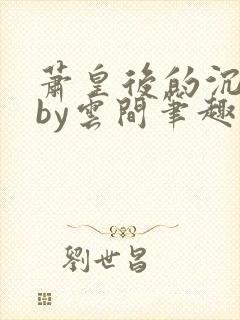 蕭皇後的沉
by雲間筆趣
劉世昌